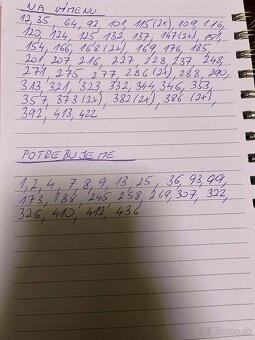 NA VÝMENU
12, 35, 64, 92, 101, 115 (2x), 109, 116,
120, 124, 125, 132, 137, 147 (2x), 151,
154, 166, 168 (2x), 169, 176, 185,
201, 207, 216, 227, 228, 237, 243,
271, 275, 277, 286 (2x), 288, 290,
313, 321, 323, 332, 344, 346, 353,
357, 373 (2x), 382 (2x), 386 (2x),
392, 413, 422
POTREBUJEME
1, 2, 4, 7, 8, 9, 13, 25, 36, 93, 99,
173, 188, 245, 258, 269, 307, 322,
326, 410, 412, 436
bazos.sk